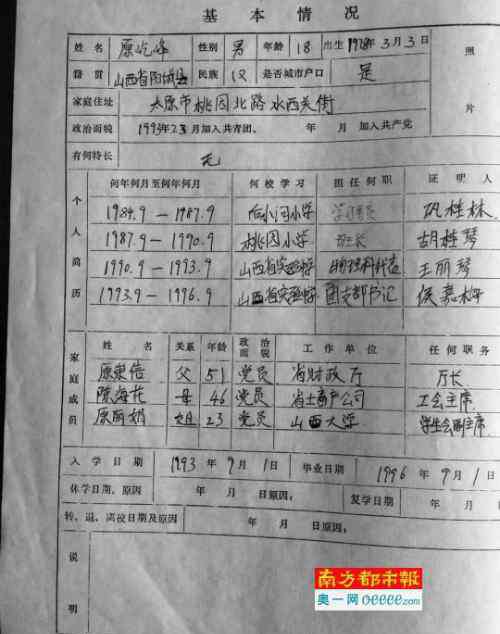 基本情况
姓名 原屹峰 性别 男 年龄 18 出生 1978年3月3日 照片
籍贯 山西省阳城县 民族 汉 是否城市户口 是
家庭住址 太原市桃园北路水西关街
政治面貌 1993年 3月加入共青团. 年 月 加入共产党
有何特长 无
个人简历 何年何月至何年何月 何校学习 担任何职 证明人
1984.9 — 1987.9 后小河小学 学习委员 巩桂林
1987.9 — 1990.9 桃园小学 班长 胡桂琴
1990.9 — 1993.9 山西省实验中学 物理科代表 王丽琴
1993.9 — 1996.9 山西省实验中学 团支部书记 侯嘉
家庭成员 姓名 关系 年龄 政治面貌 工作单位 任何职务
原 父 51 党员 省财政厅 厅长
陈海花 母 46 党员 省土畜产公司 工会主席
原丽娟 姐 23 党员 山西大学 学生会副主席
入学日期 1993年9月1日 毕业日期 1996年9月1日
休学日期、原因 年 月 日原因: 复学日期 年 月 日
转、退、离校日期及原因 年 月 日原因:
说明
南方都市報
奥一网 oeeee.com